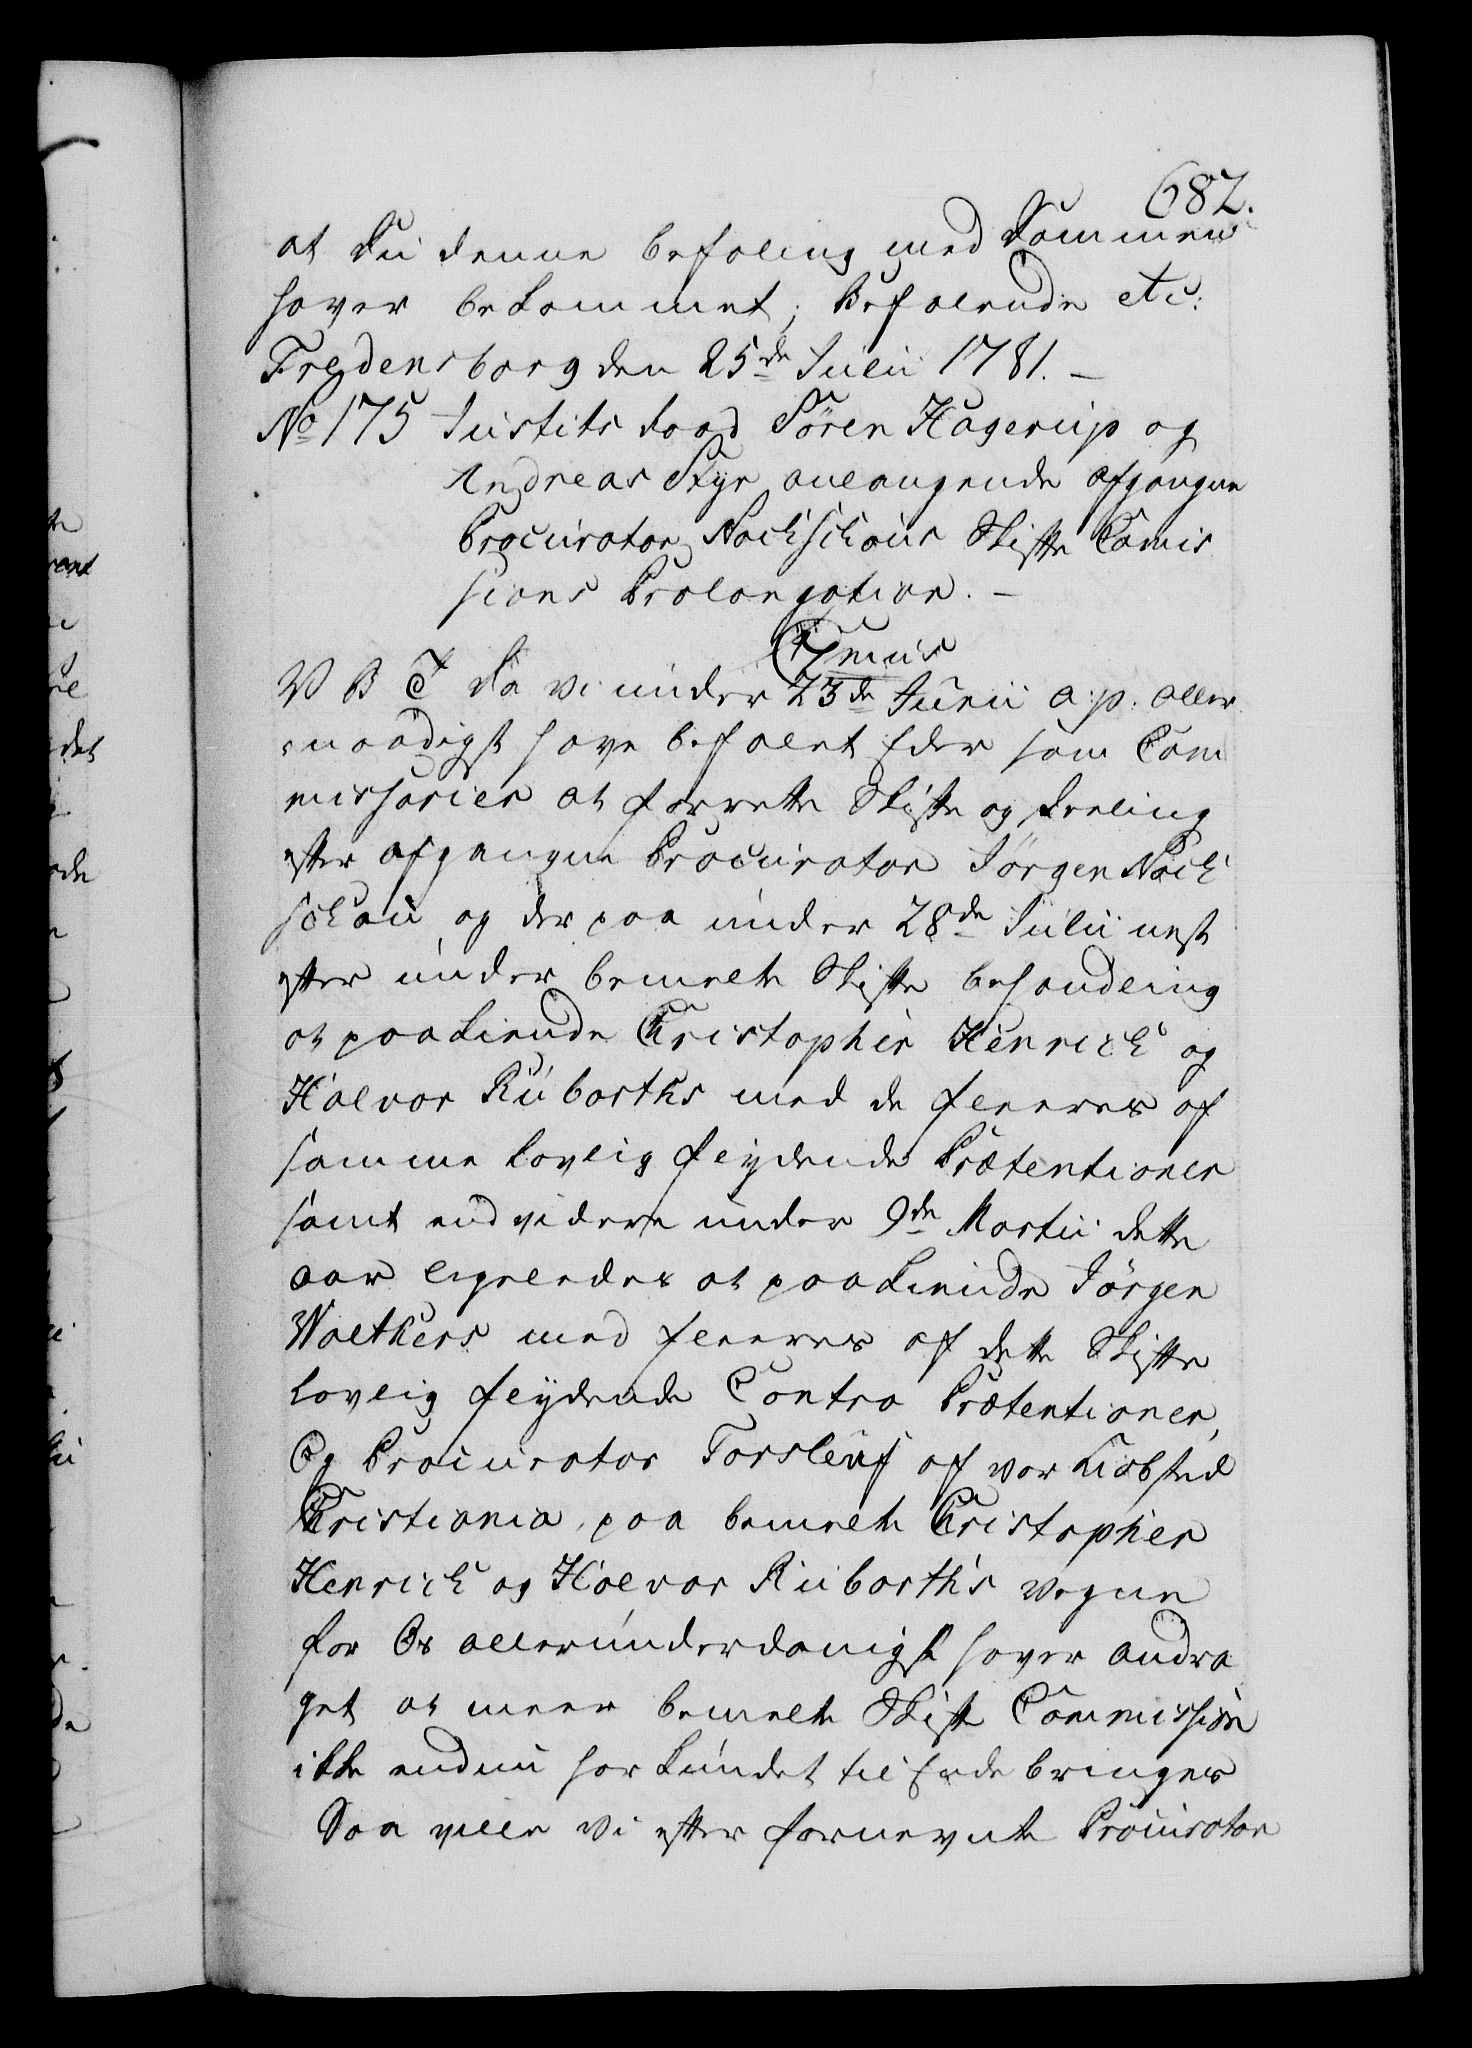 682.
at du denne befaling med Dommen
haver bekommet; Befalende etc:
Fredensborg den 25de Julii 1781. –
No 175 Justitsraad Sören Hagerup og
Andreas Styr anlangende afgangne
Procurator Nachschous Skifte Comis
sions Prolongation. –
C7mus
V B T Da vi under 23de Junii a: p: aller
naadigst have befalet Eder som Com
missarier at forrette Skifte og Deeling
efter afgangne Procurator Jørgen Nach
schou og der paa under 28de Julii nest
efter under bemelte Skifte behandling
at paakiende Christopher Henrich og
Halvor Rúbarths med de fleeres af
samme lovlig flydende Prætentioner
samt end videre under 9de Martii dette
aar ligeledes at paakiende Jørgen
Walthers med fleeres af dette Skifte
lovlig flydende Contra Prætentioner,
Og Procurator Torsleuf af vor Kiøbsted
Christiania, paa bemelte Christopher
Henrich og Halvor Rúbarth's Vegne
for Os allerunderdanigst haver andra
get at meer bemelte Skifte Commission
ikke endnu har kundet til Ende bringes
Saa ville Vi efter fornevnte Procurator